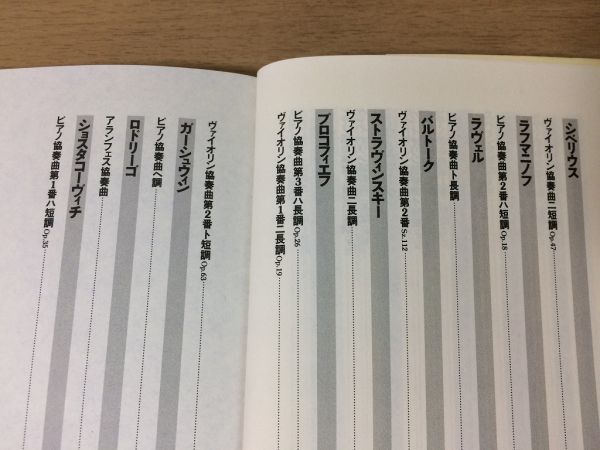 シベリウス
ヴァイオリン協奏曲ニ短調 Op.47
ラフマニノフ
ピアノ協奏曲第2番ハ短調 Op.18
ラヴェル
ピアノ協奏曲ト長調
バルトーク
ヴァイオリン協奏曲第2番 Sz.112
ストラヴィンスキー
ヴァイオリン協奏曲ニ長調
プロコフィエフ
ピアノ協奏曲第3番ハ長調 Op.26
ヴァイオリン協奏曲第1番ニ長調 Op.19
ヴァイオリン協奏曲第2番ト短調 Op.63
ガーシュウィン
ピアノ協奏曲ヘ調
ロドリーゴ
アランフェス協奏曲
ショスタコーヴィチ
ピアノ協奏曲第1番ハ短調 Op.35